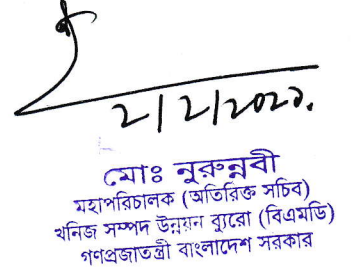 ২/২/২০২১.
মোঃ নুরুন্নবী
মহাপরিচালক (অতিরিক্ত সচিব)
খনিজ সম্পদ উন্নয়ন ব্যুরো (বিএমডি)
গণপ্রজাতন্ত্রী বাংলাদেশ সরকার